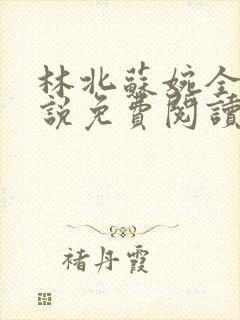 林北蘇婉全
說免費閱讀
褚丹霞